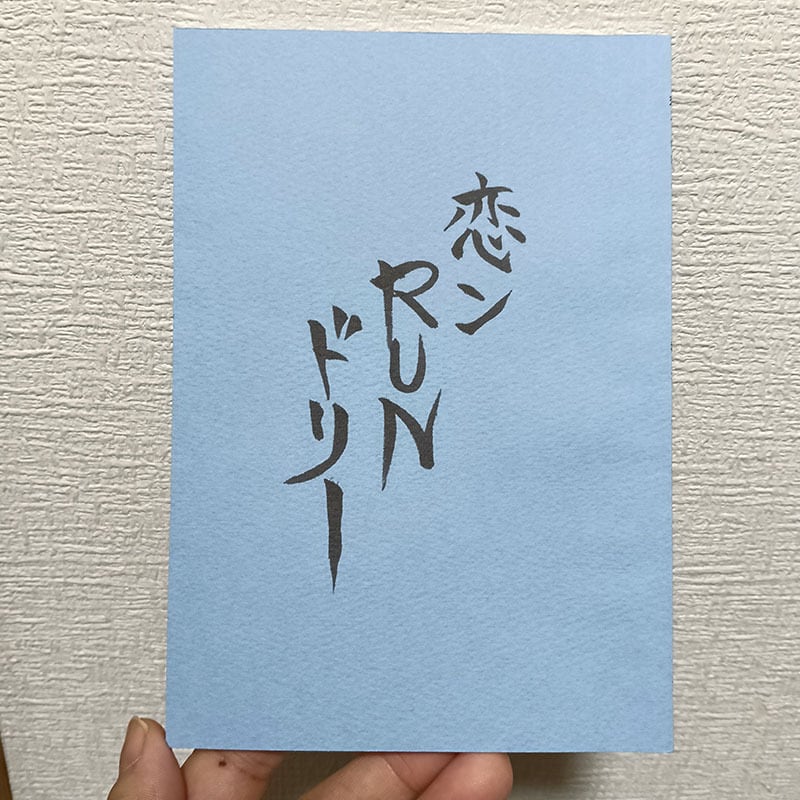 恋ン
RUN
ドリー